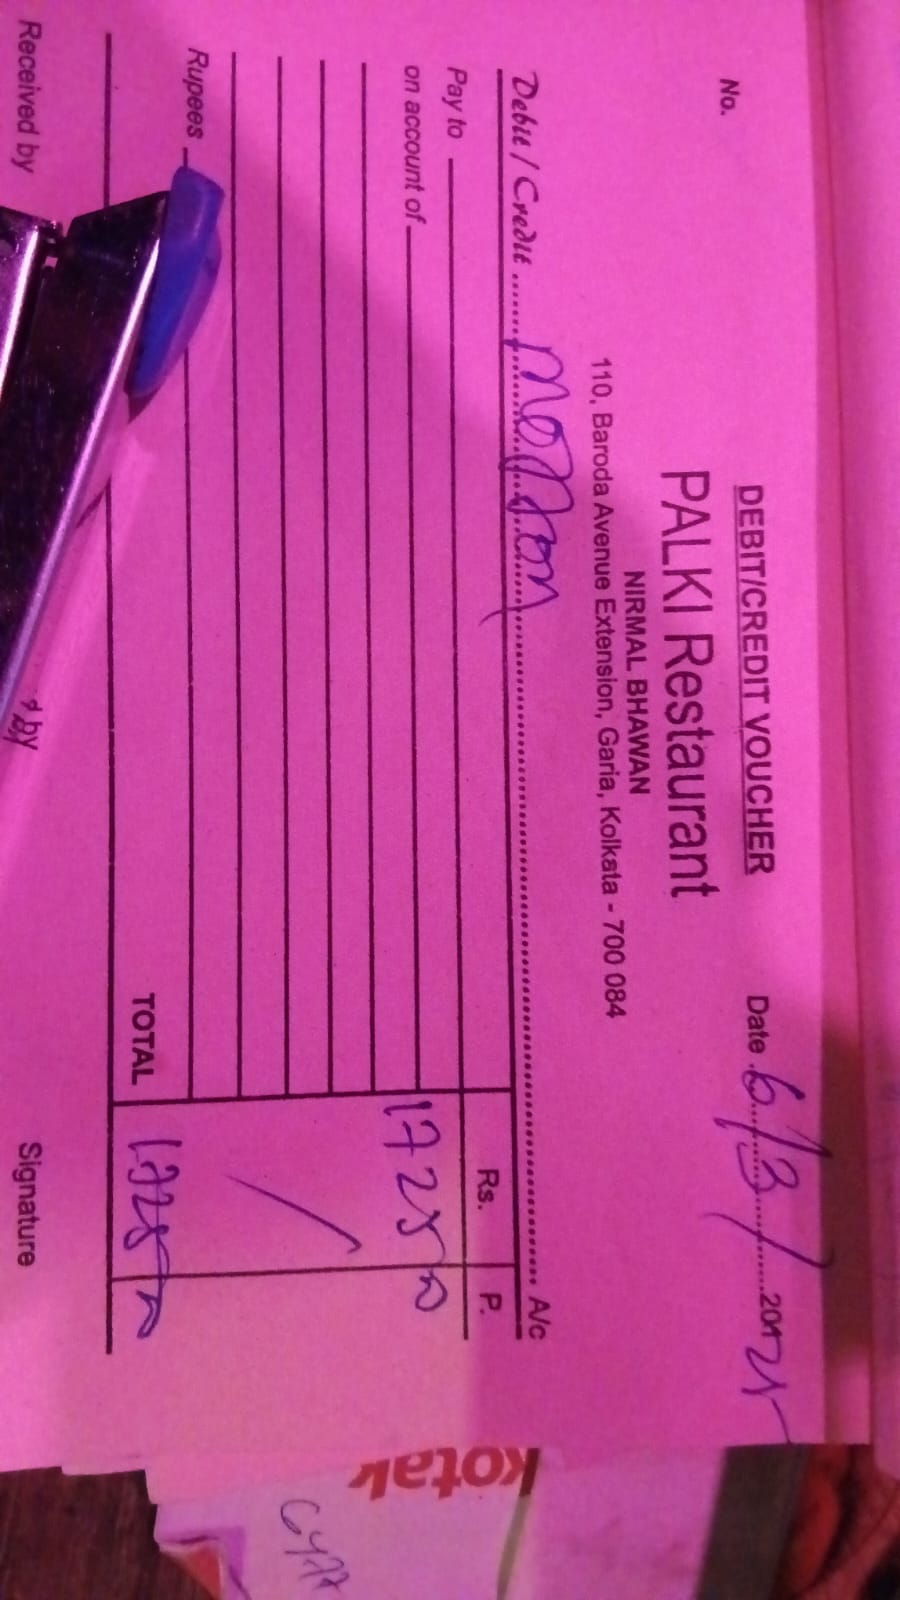 DEBIT/CREDIT VOUCHER
No.
Date 6/3/2025
PALKI Restaurant
NIRMAL BHAWAN
110, Baroda Avenue Extension, Garia, Kolkata - 700 084
Debit / Credit A/c
Pay to Rs. P.
on account of 1725 00
Rupees
TOTAL 1725 00
Received by by Signature
kotak